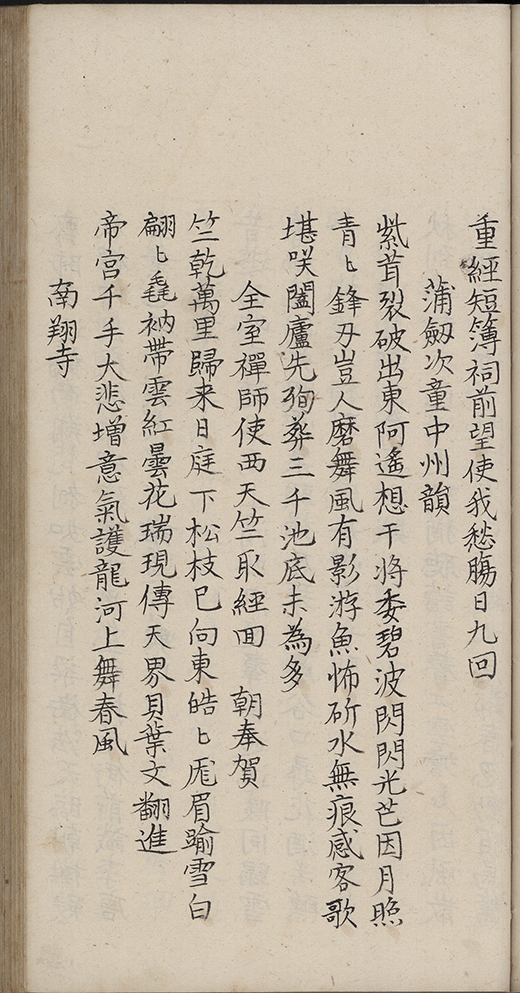 重經短簿祠前望使我愁腸日九回
蒲劒次童中州韻
紫茸裂破出東阿遙想干將委碧波閃閃光芒因月照
青〻鋒刃豈人磨舞風有影游魚怖斫水無痕感客歌
堪咲闔廬先殉葬三千池底未為多
全室禪師使西天竺取經回 朝奉賀
竺乾萬里歸来日庭下松枝已向東皓〻厖眉踰雪白
翩〻毳衲帶雲紅曇花瑞現傳天界貝葉文翻進
帝宮千手大悲增意氣護龍河上舞春風
南翔寺